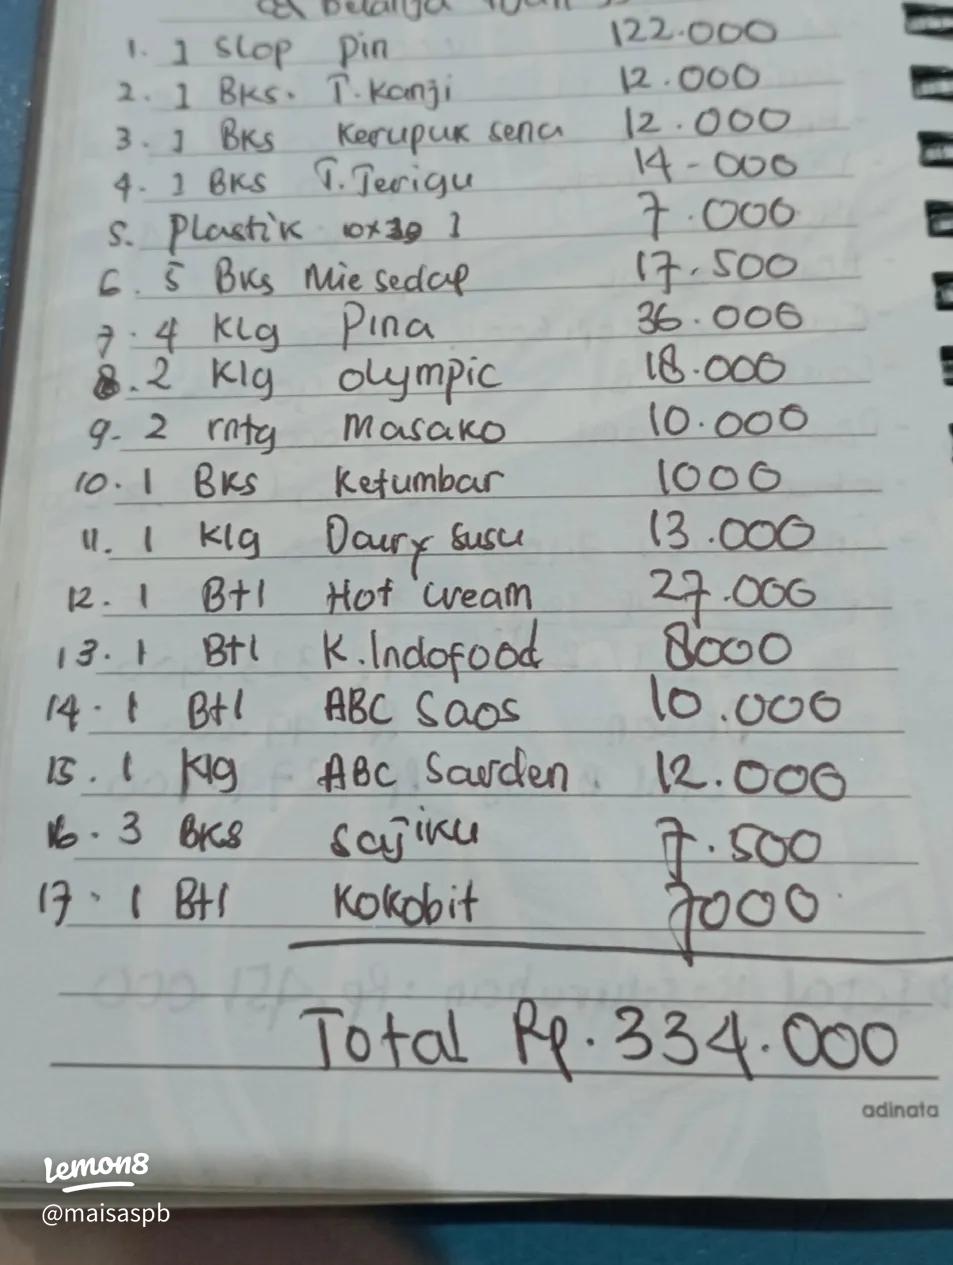 Belanja
1. 1 Slop Pin 122.000
2. 1 BKS. T. Kanji 12.000
3. 1 BKS Kerupuk sena 12.000
4. 1 BKS T. Terigu 14-000
5. Plastik 10x30 1 7.000
6. 5 BKS Mie sedap 17.500
7. 4 Klg Pina 36.000
8. 2 Klg Olympic 18.000
9. 2 rntg Masako 10.000
10. 1 BKS Ketumbar 1000
11. 1 Klg Dairy Susu 13.000
12. 1 Btl Hot Cream 27.000
13. 1 Btl K. Indofood 8000
14. 1 Btl ABC Saos 10.000
15. 1 Klg ABC Sarden 12.000
16. 3 BKS Sajiku 7.500
17. 1 Btl Kokobit 7000
Total Rp. 334.000
adinata
Lemon8
@maisaspb